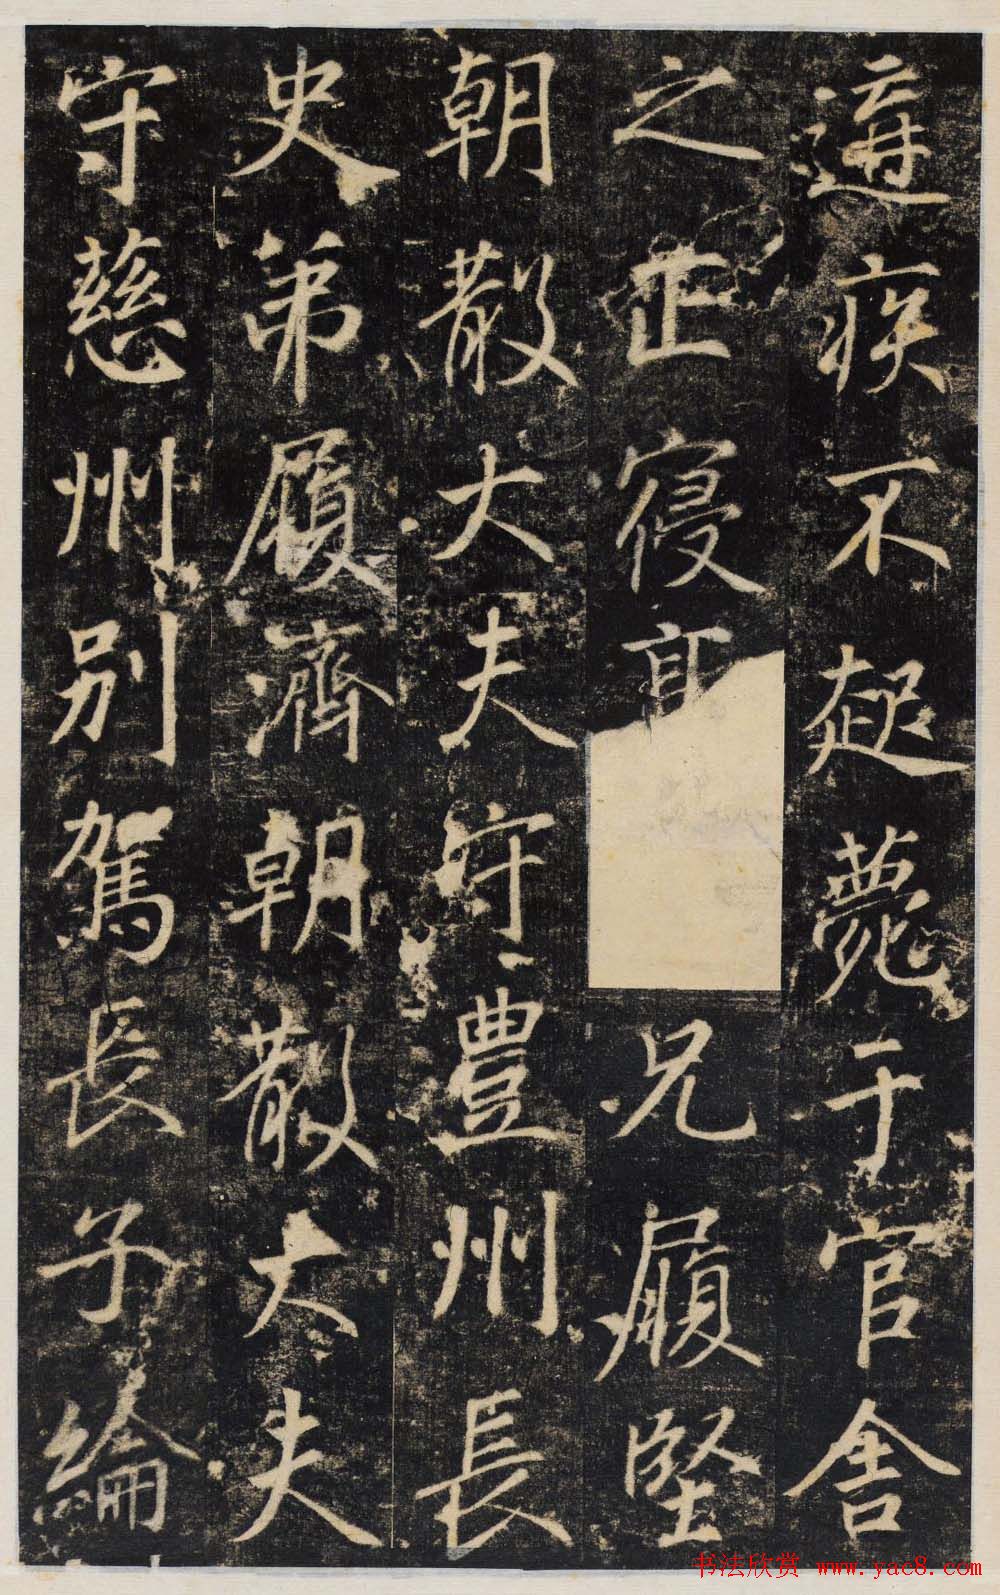 遘疾不起薨于官舍
之正寢享兄履堅
朝散大夫守豐州長
史弟履濟朝散大夫
守慈州別駕長子綸
书法欣赏 www.yac8.com